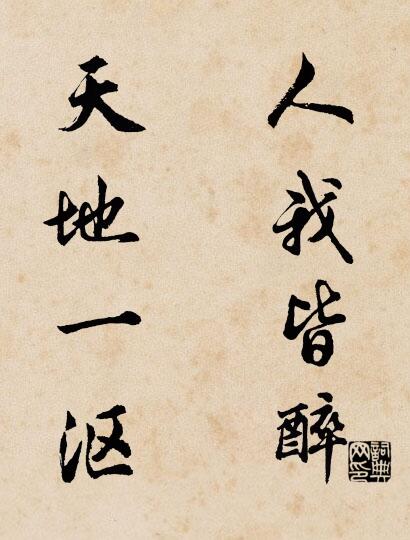 人我皆醉
天地一沤
詞典网印